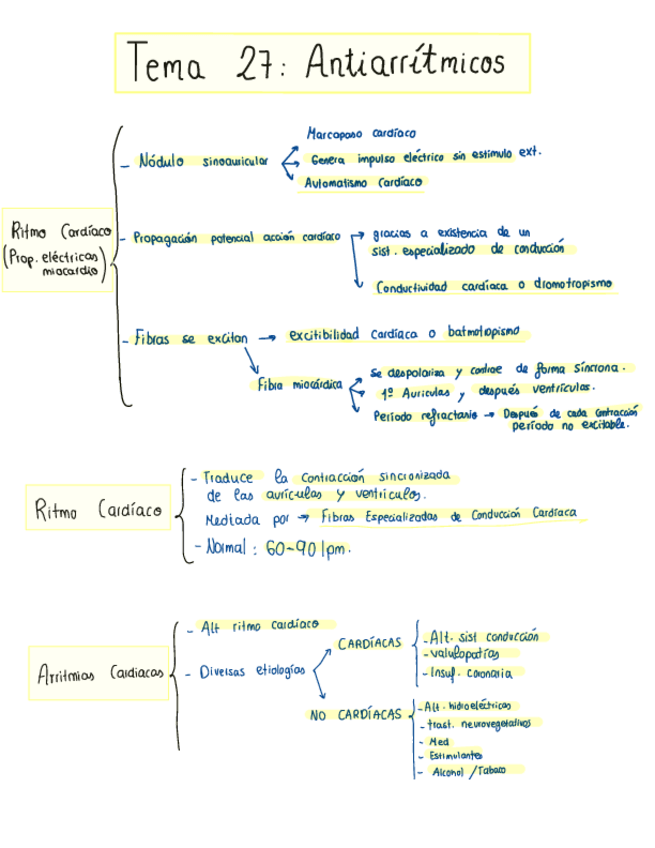 Tema 27: Antiarrítmicos
Ritmo Cardíaco
(Prop. eléctricas
miocardio)
- Nódulo sinoauricular
Marcapaso cardíaco
Genera impulso eléctrico sin estimulo ext.
Automatismo Cardíaco
- Propagación potencial acción cardíaco
gracias a existencia de un
sist. especializado de conducción
Conductividad cardíaca o dromotropismo
- Fibras se excitan → excitibilidad Cardíaca o batmotropismo
Fibra miocárdica
Se despolariza y contrae de forma síncrona.
1º Aurículas y después ventrículas.
Período refractario → Después de cada contracción
período no excitable.
Ritmo Cardíaco
- Traduce la contracción sincronizada
de las aurículas y ventriculos.
Mediada por → Fibras Especializadas de Conducción Cardíaca
- Normal: 60-90 lpm.
Arritmias Cardiacas
- Alt ritmo cardíaco
- Diversas etiologías
CARDÍACAS
- Alt. sist conducción
- valvulopatías
- Insuf. coronaria
NO CARDÍACAS
- Alt. hidroeléctricas
- trast. neurovegetativos
- Med
- Estimulantes
- Alcohol / Tabaco